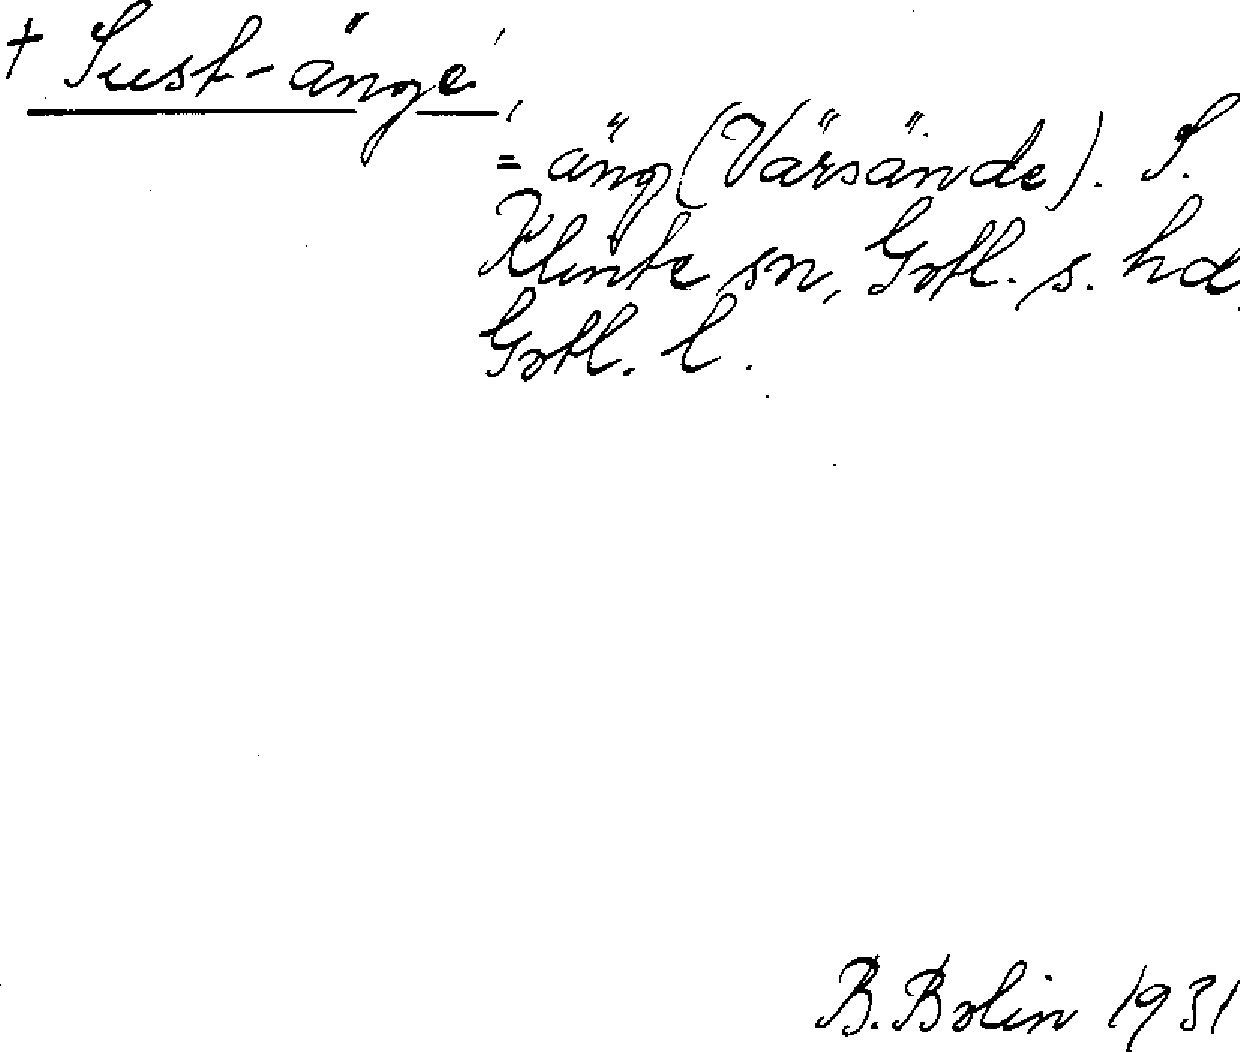 + Sust-änge,
= äng (Värsände). S.
Klinte sn, Gotl. s. hd,
Gotl. l.
B. Bolin 1931